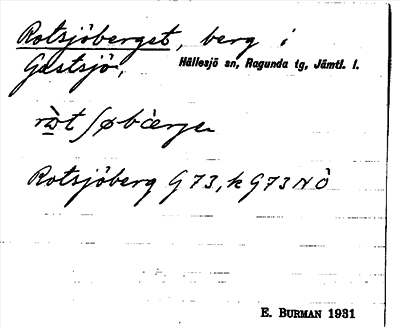 Rotsjöberget, berg i
Gastsjö, Hällesjö sn, Ragunda tg, Jämtl. l.
Rotsjöberg G 73, k G 73 NÖ
E. BURMAN 1931